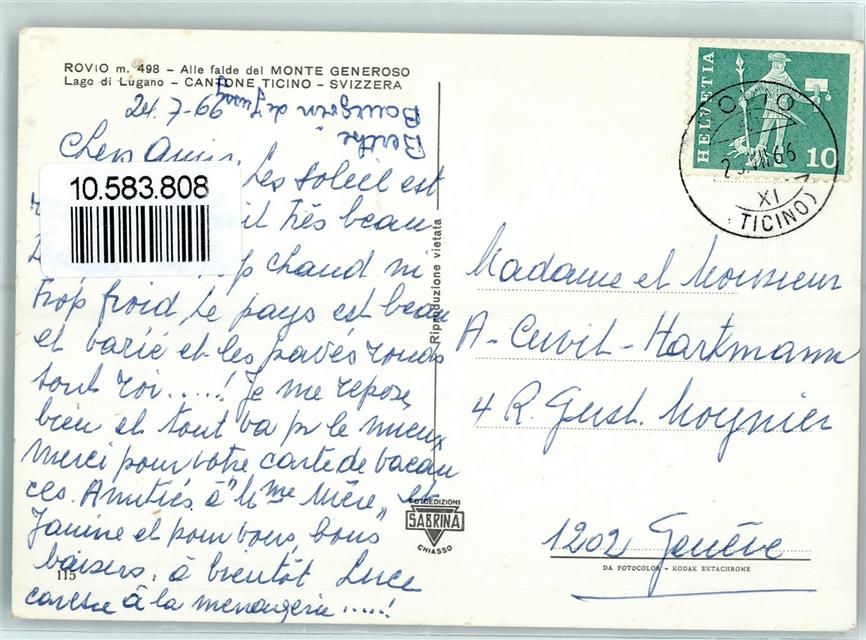 ROVIO m. 498 - Alle falde del MONTE GENEROSO
Lago di Lugano - CANTONE TICINO - SVIZZERA
24.7-66
Berthe
Bourgrin de Jussy
Chers Amis, Les soleil est
il très beau
10.583.808
p chaud ni
trop froid, le pays est beau
et varié et les pavés ronds
sont roi.....! Je me repose
bien et tout va pr le mieux
merci pour votre carte de vacan
ces. Amitiés à "la me Mère" et
Janine et pour vous, bons
baisers, à bientôt Luce
caresse à la menagerie.....!
115
Riproduzione vietata
FOTOEDIZIONI
SABRINA
CHIASSO
HELVETIA
10
VII.66
XI
(TICINO)
Madame et Monsieur
A-Cuvit-Hartmann
4 R. Gust. Moynier
1202 Genève
DA FOTOCOLOR - KODAK EKTACHROME